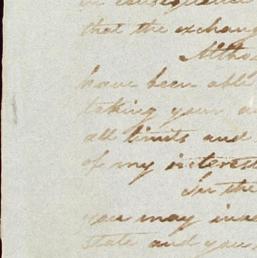 be consequence
that the exchang
Altho
have been able
taking your a
all limits and
of my interest
In the
you may inve
state and you